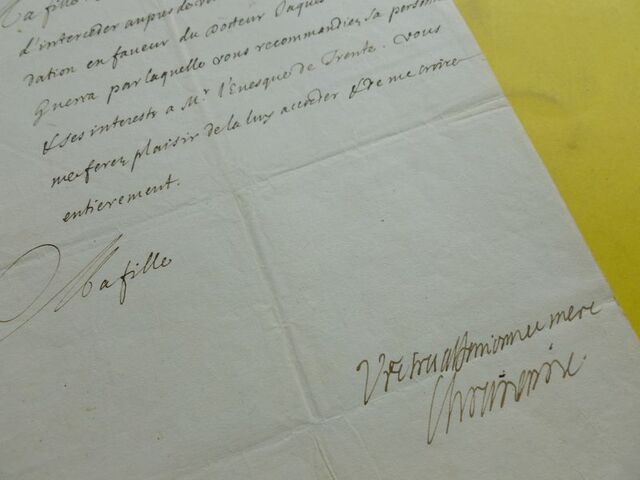 Ma fille
d'interceder aupres de
dation en faveur du Docteur Jaques
Guerra par laquelle vous recommandiez sa person
& ses interests a Mr. l'Euesque de Trente. Vous
me ferez plaisir de la luy accorder & de me croire
entierement.
Ma fille
mere